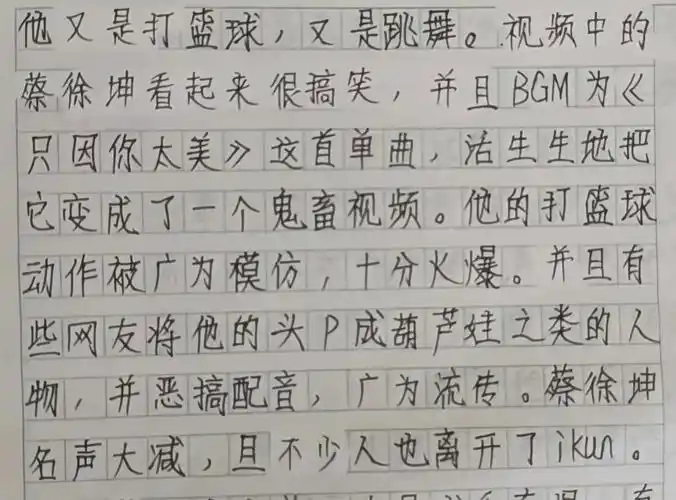 他又是打篮球，又是跳舞。视频中的
蔡徐坤看起来很搞笑，并且BGM为《
只因你太美》这首单曲，活生生地把
它变成了一个鬼畜视频。他的打篮球
动作被广为模仿，十分火爆。并且有
些网友将他的头P成葫芦娃之类的人
物，并恶搞配音，广为流传。蔡徐坤
名声大减，且不少人也离开了ikun。